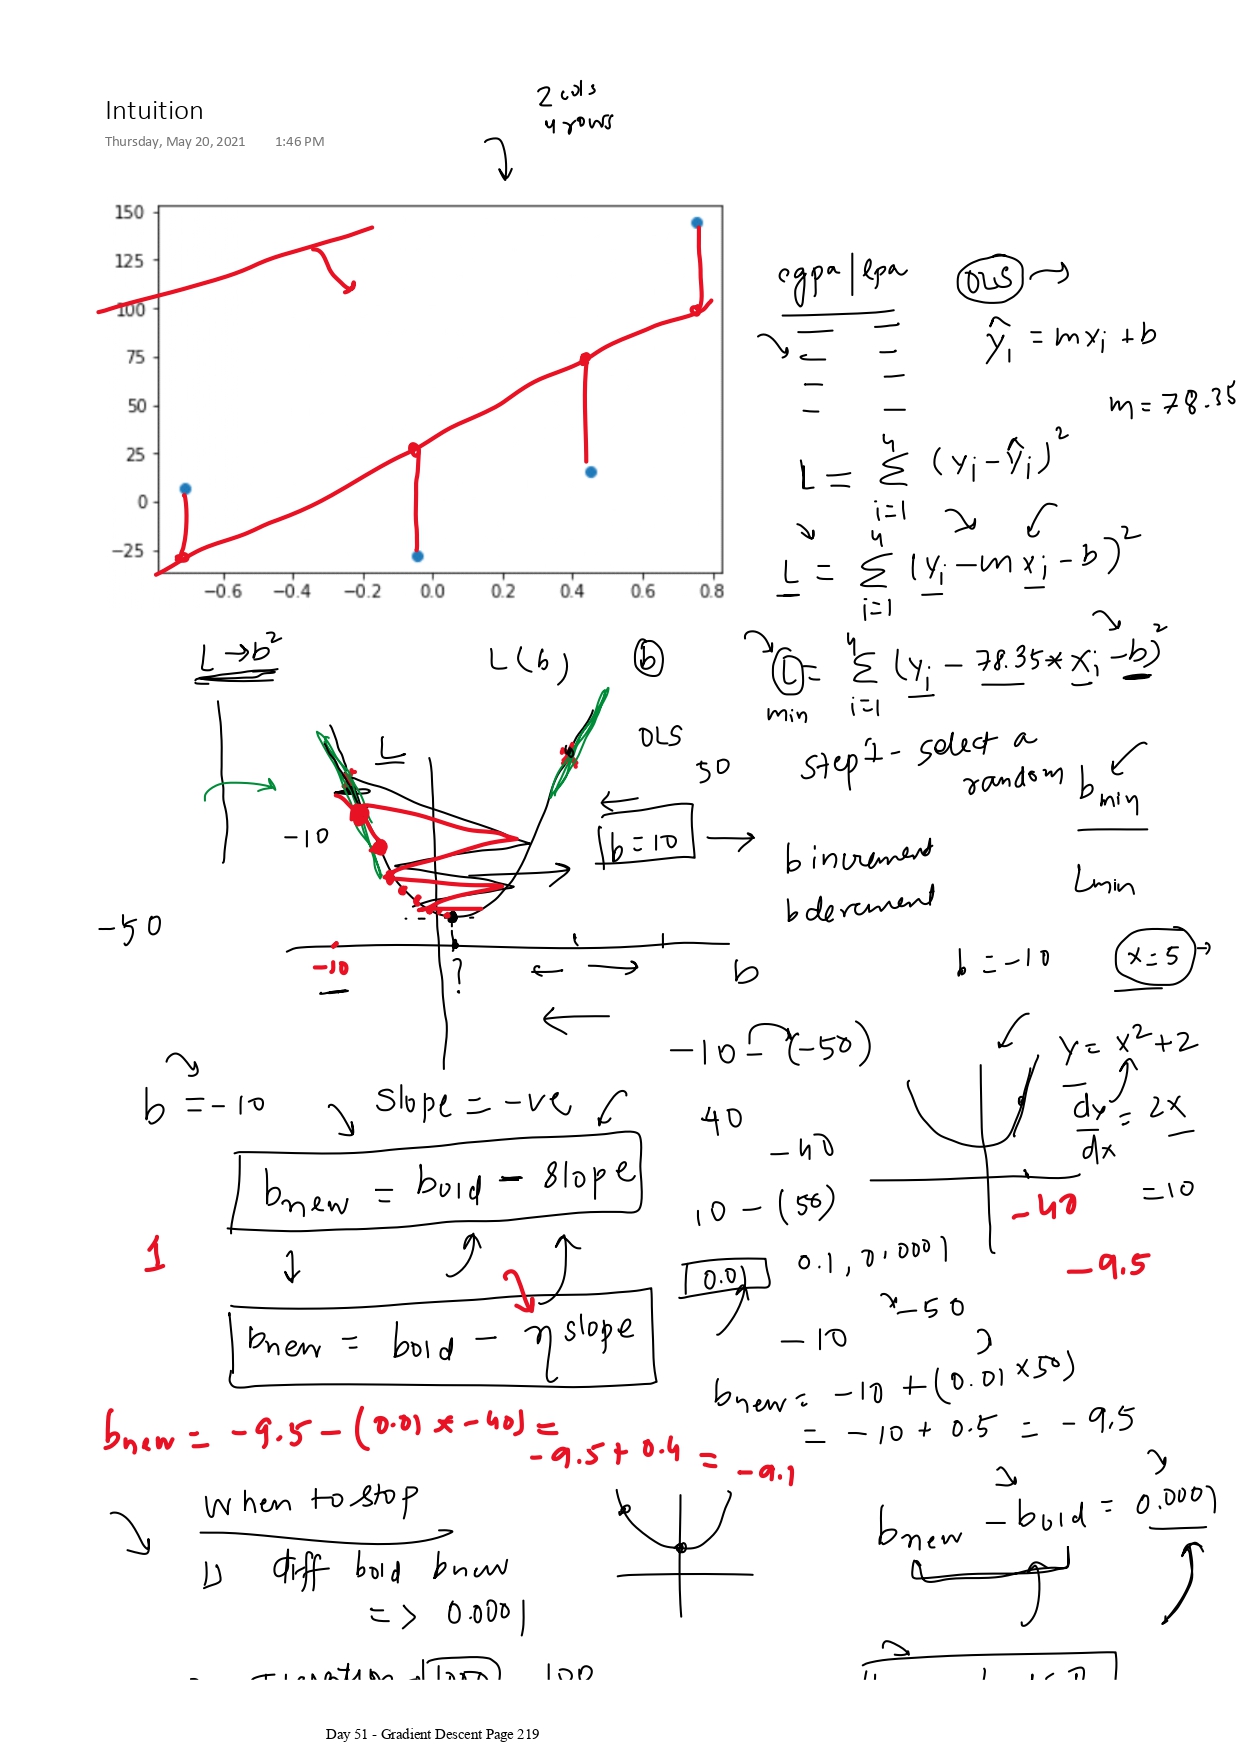 Intuition
Thursday, May 20, 2021 1:46 PM
2 cols
4 rows
150
125
100
75
50
25
0
−25
−0.6 −0.4 −0.2 0.0 0.2 0.4 0.6 0.8
cgpa | lpa
OLS
ŷi = mxi + b
m = 78.35
L = Σ (yi − ŷi)²
4
i=1
L = Σ (yi − mxi − b)²
4
i=1
L = Σ (yi − 78.35 * xi − b)²
4
i=1
min
L → b²
L(b) b
L
OLS
50
b = 10
-10
-50
-10
?
b
Step 1 - select a
random b
min
b increment
b decrement
Lmin
b = -10 x = 5
y = x² + 2
dy/dx = 2x
= 10
-10 - (-50)
40
-40
10 - (50)
-40
-9.5
b = -10 slope = -ve
bnew = bold - slope
1
bnew = bold - η slope
0.01 0.1, 0.0001
-50
-10
bnew = -10 + (0.01 × 50)
= -10 + 0.5 = -9.5
bnew = -9.5 - (0.01 * -40) =
-9.5 + 0.4 = -9.1
When to stop
1) diff bold bnew
=> 0.0001
bnew - bold = 0.0001
iteration 1000 100
Day 51 - Gradient Descent Page 219